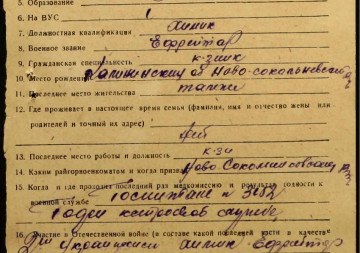 5. Образование
6. На ВУС
7. Должностная квалификация Химик
8. Военное звание Ефрейтор
9. Гражданская специальность к-зник
10. Место рождения Калининский об Ново-сокольнический
11. Последнее место жительства также
12. Где проживает в настоящее время семья (фамилия, имя и отчество жены или
родителей и точный их адрес)
нет
13. Последнее место работы и должность к-з
14. Каким райгорвоенкоматом и когда призван Ново-Сокольническим
15. Когда и где проходил последний раз медкомиссию и результат годности к
военной службе Госпитале 3
Годен к строевой службе
16. Участие в Отечественной войне (в составе какой войсковой части в качестве
Украинский химик Ефрейтор